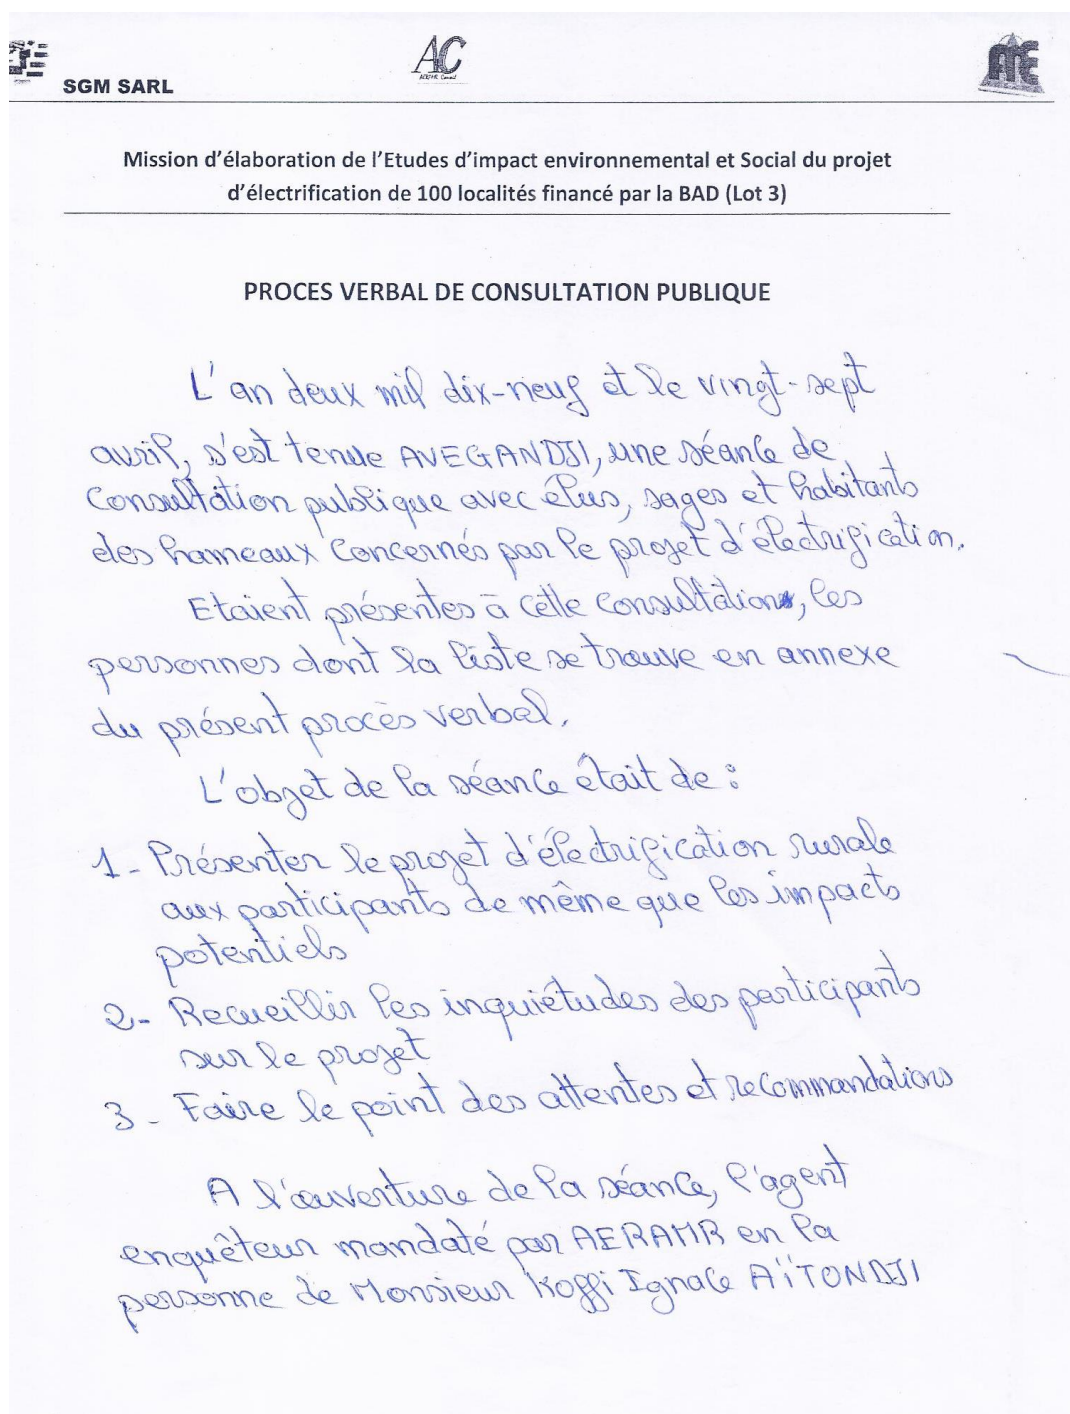 SGM SARL
AC
Mission d'élaboration de l'Etudes d'impact environnemental et Social du projet
d'électrification de 100 localités financé par la BAD (Lot 3)
PROCES VERBAL DE CONSULTATION PUBLIQUE
L'an deux mil dix-neuf et le vingt-sept
avril, s'est tenue AVEGANDJI, une séance de
Consultation publique avec élus, sages et habitants
des hameaux Concernés par le projet d'électrification.
Etaient présentes à cette Consultation, les
personnes dont la liste se trouve en annexe
du présent procès verbal.
L'objet de la séance était de :
1- Présenter le projet d'électrification rurale
aux participants de même que les impacts
potentiels
2- Recueillir les inquiétudes des participants
sur le projet
3- Faire le point des attentes et recommandations
A l'ouverture de la séance, l'agent
enquêteur mandaté par AERAMR en la
personne de Monsieur Koffi Ignace AÏTONDJI